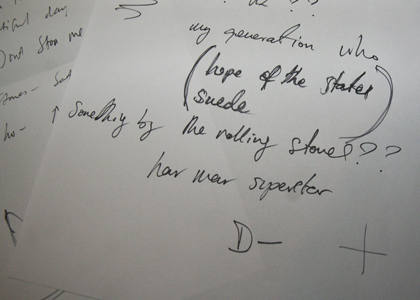 my generation who
tiful day
Dont Stop me
(hope of the states
suede)
↑ Something by the rolling stones???
ho-
har mar superstar
D- +